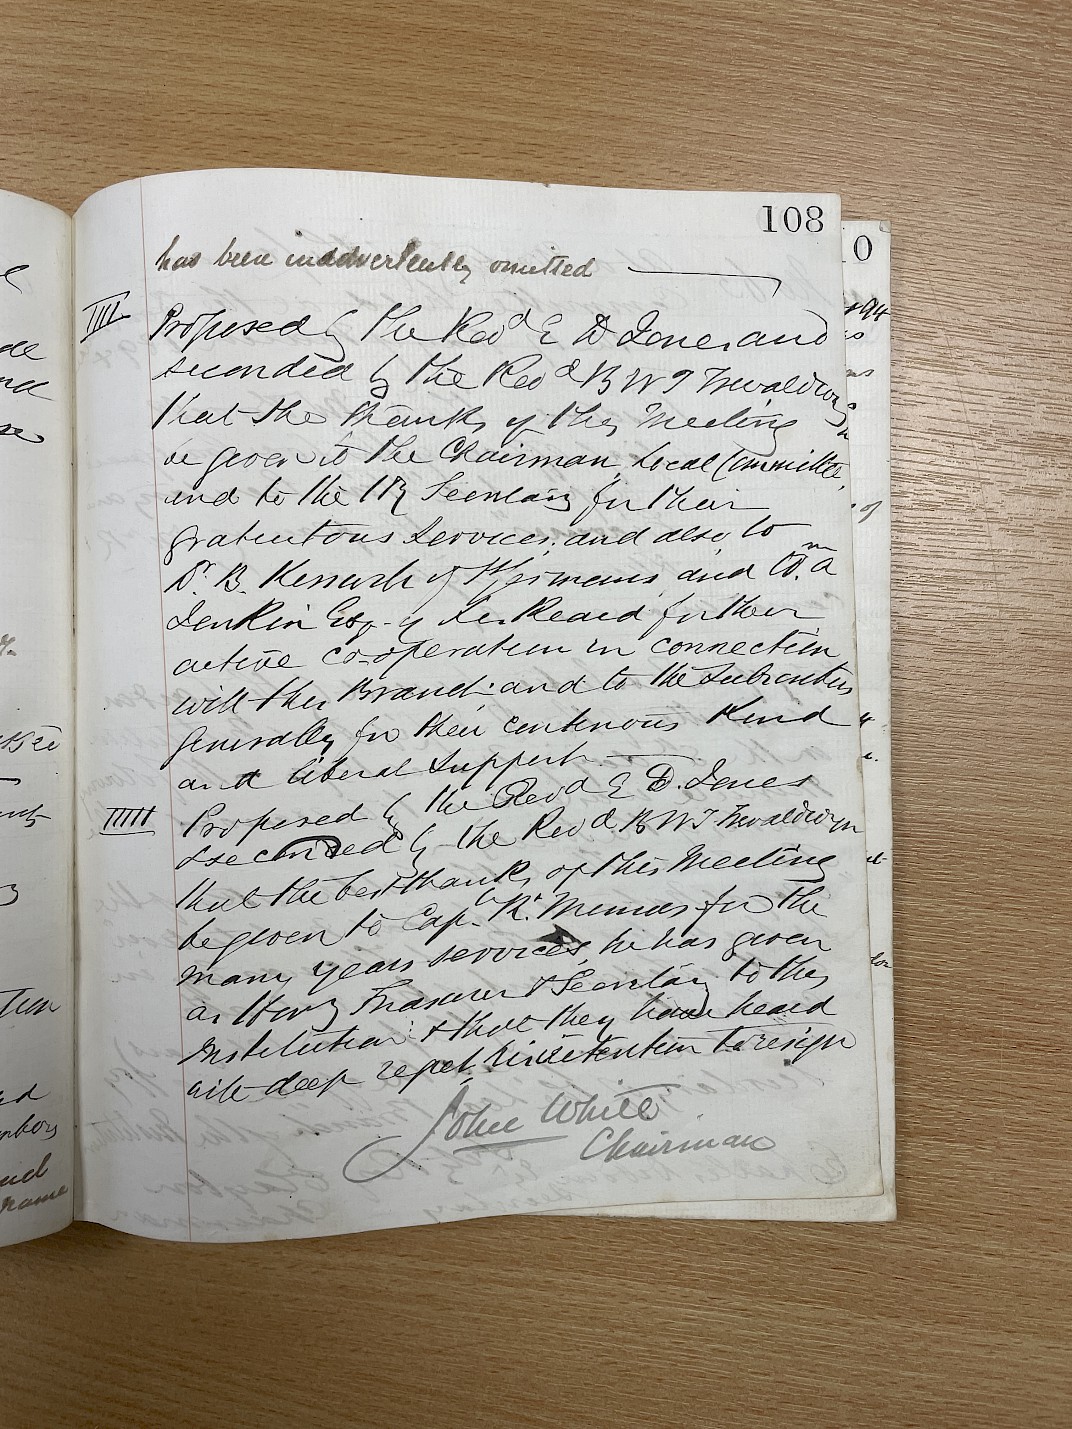 108
has been inadvertently omitted
IIII Proposed by the Revd E D Jones and
seconded by the Revd B W T Trewaldwyn
that the thanks of this Meeting
be given to the Chairman, Local Committee,
and to the Secretary for their
gratuitous Services; and also to
Dr. B. of St Germans, and Wm. A
Jenkin Esq. of Liskeard for their
active co-operation in connection
with this Branch; and to the Subscribers
generally for their continuous Kind
and liberal Support.
IIIII Proposed by the Revd E D. Jones
& seconded by the Revd B W T Trewaldwyn
that the best thanks of this Meeting
be given to Capt. Rd. for the
many years services, he has given
as Hony Treasurer & Secretary to this
Institution: & that they have heard
with deep regret his intention to resign
John White
Chairman